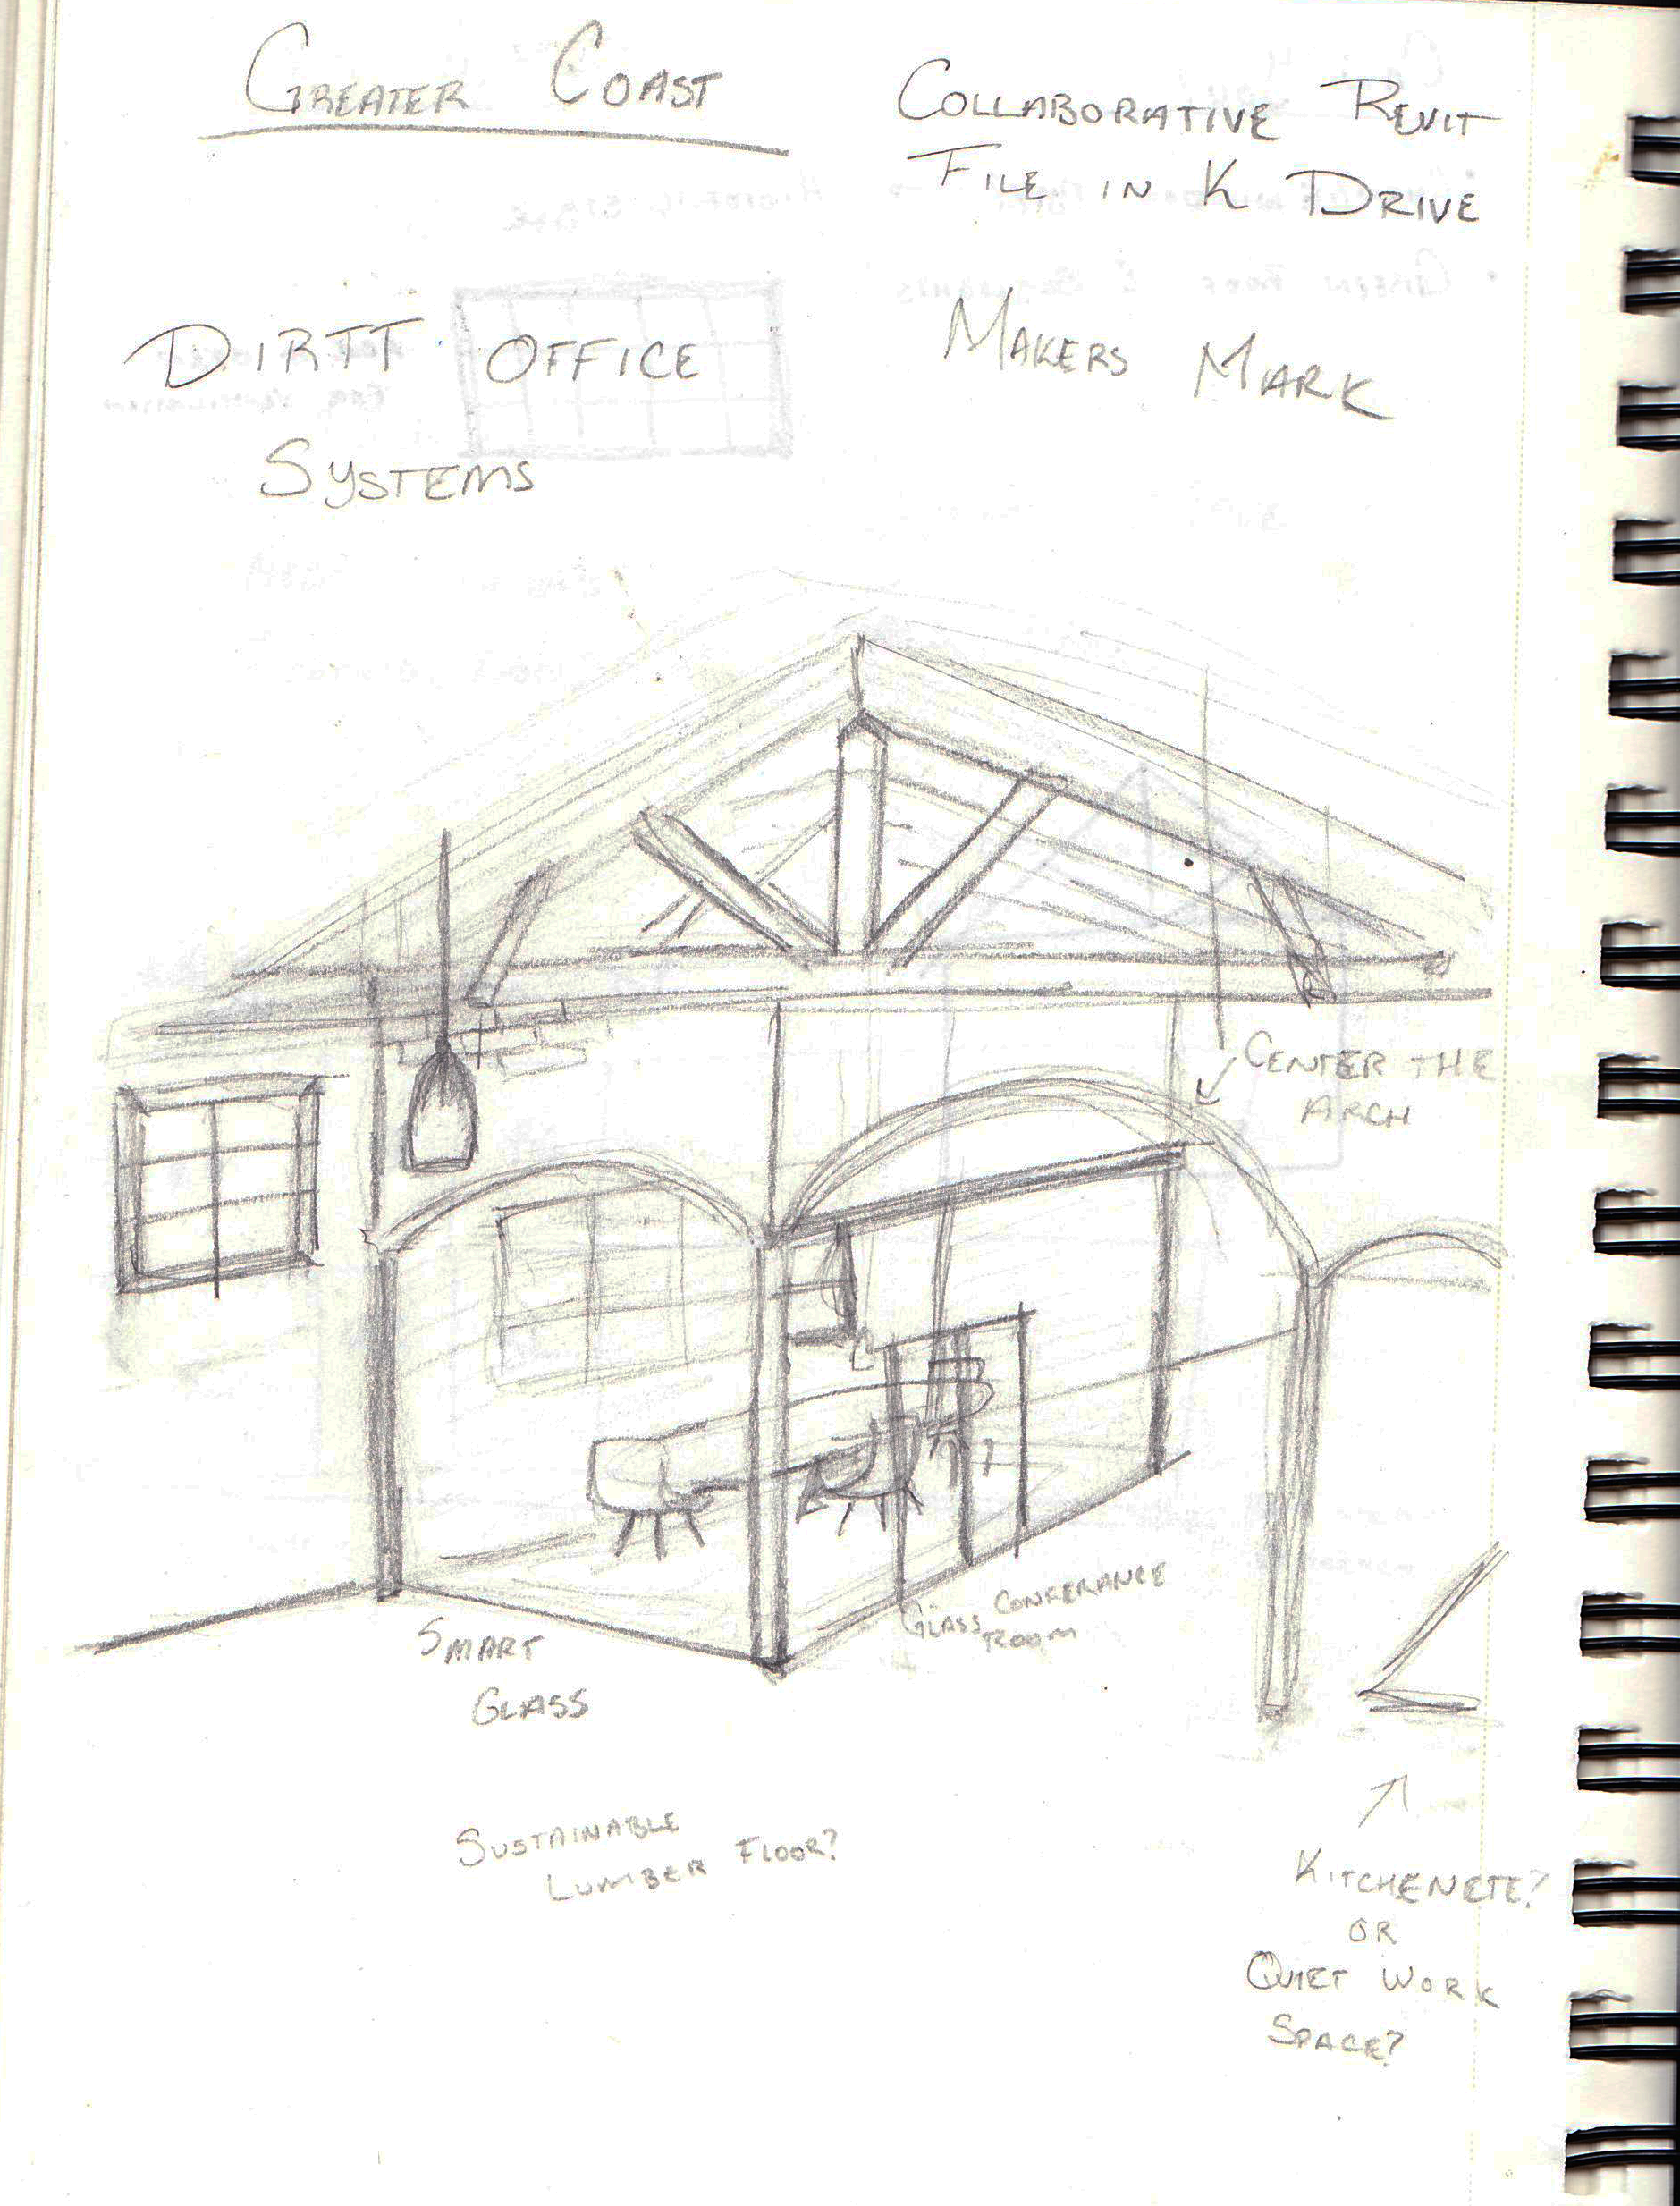 GREATER COAST
COLLABORATIVE REVIT
FILE IN K DRIVE
DIRTT OFFICE
SYSTEMS
MAKERS MARK
CENTER THE
ARCH
SMART
GLASS
GLASS CONFERANCE
ROOM
SUSTAINABLE
LUMBER FLOOR?
KITCHENETE?
OR
QUIET WORK
SPACE?